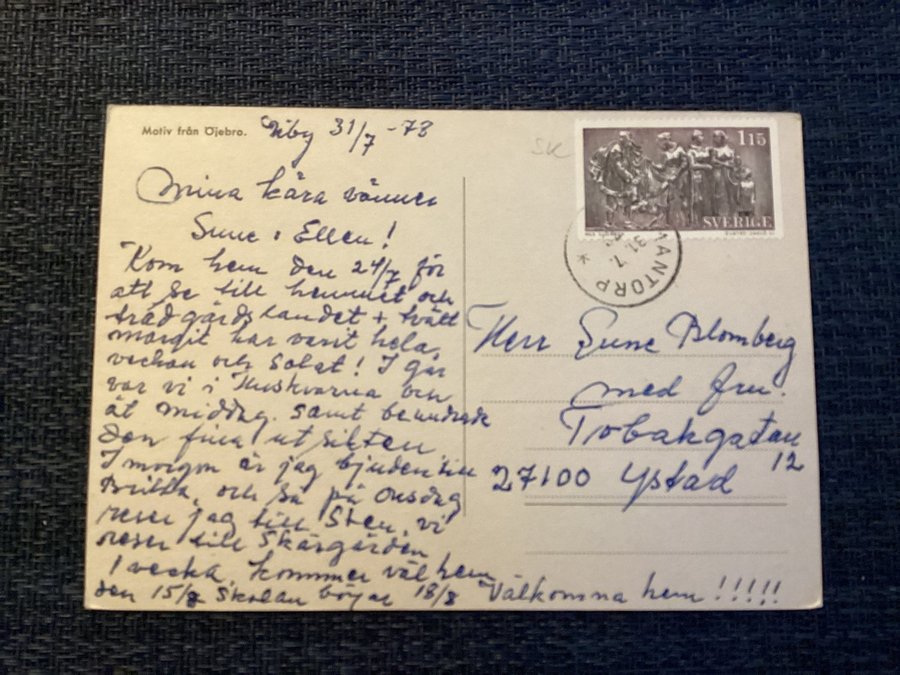 Motiv från Öjebro.
Viby 31/7 -78
Mina kära vänner
Sune o Ellen!
Kom hem den 24/7 för
att se till hemmet och
trädgårdslandet + tvätt
Margit har varit hela
veckan och solat! I går
var vi i Huskvarna och
åt middag. samt beundrade
den fina utsikten
I morgon är jag bjuden till
Britta, och så på Onsdag
reser jag till Sten, vi
reser till Skärgården
1 vecka, kommer väl hem
den 15/8 Skolan börjar 18/8 Välkomna hem !!!!!
SK
1 15
SVERIGE
MANTORP
31. 7.
Herr Sune Blomberg
med fru.
Tobakgatan
12
27100 Ystad